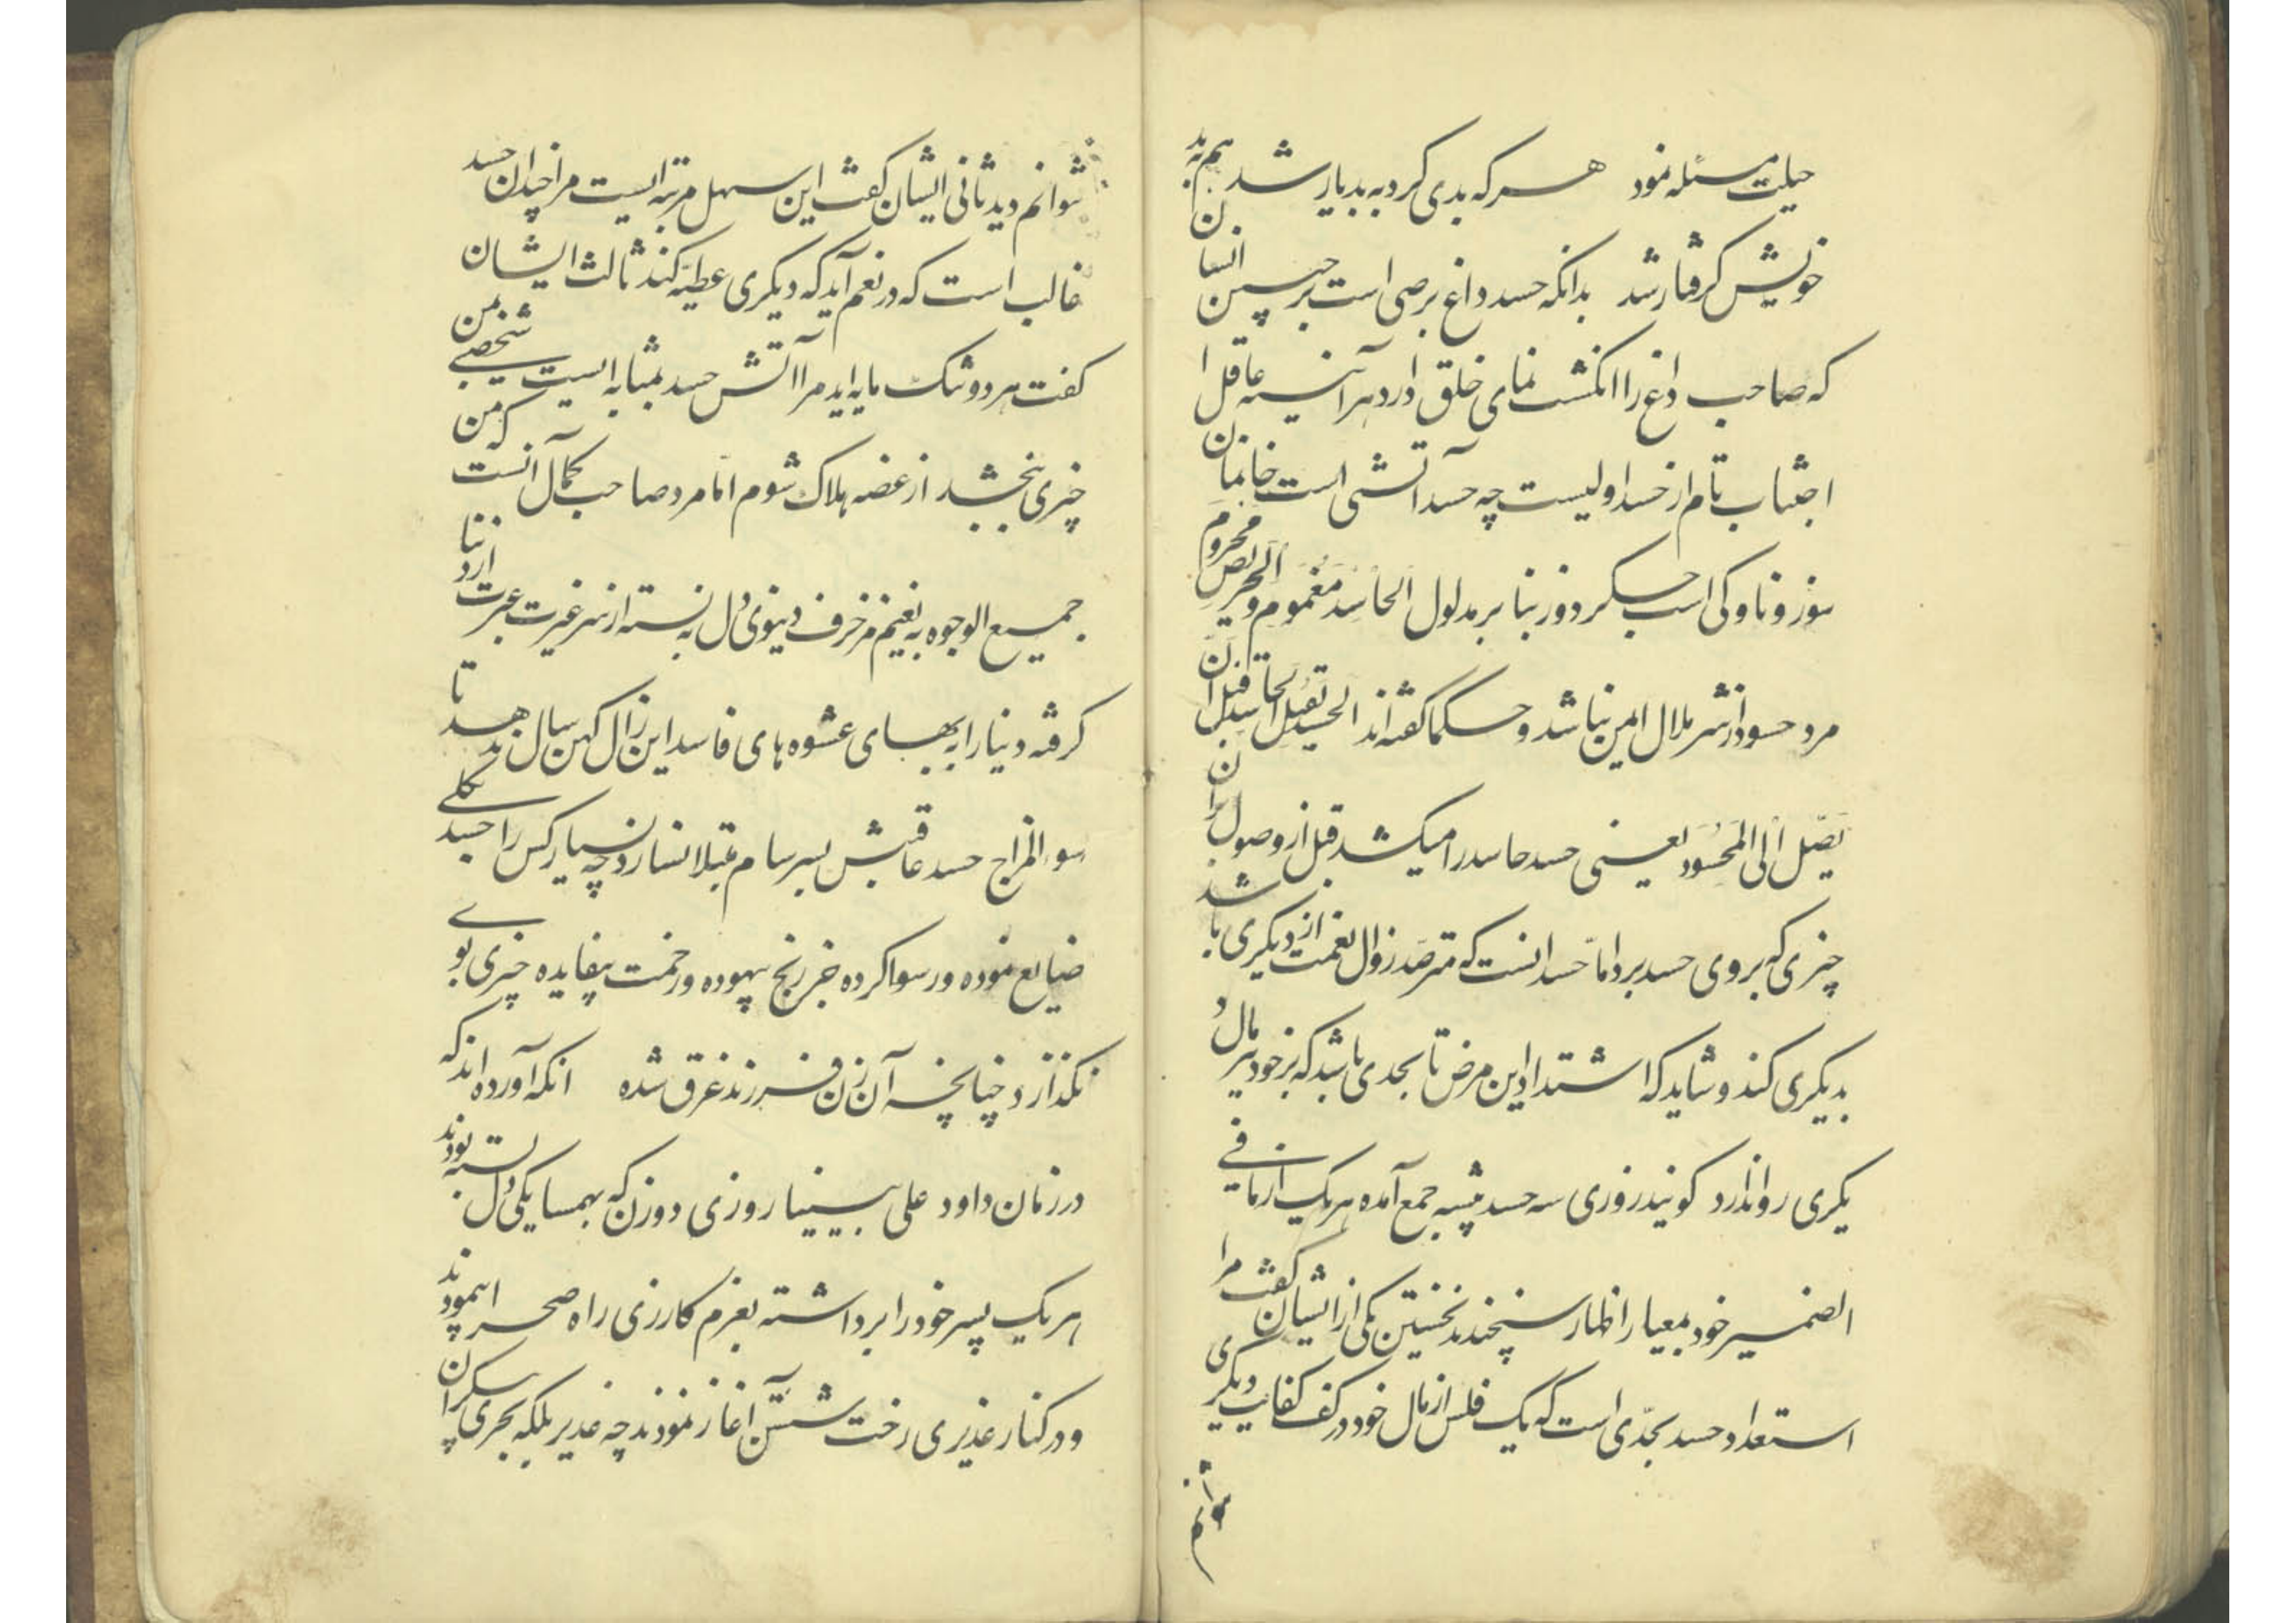 حیلت مسئله نمود هر که بدی کرد به بد یار شد هم به بد
خویش گرفتار شد بدانکه حسد داغ برصی است بر جبین انسان
که صاحب داغ را انگشت نمای خلق دارد هر آینه عاقل را
اجتناب تام از حسد اولیست چه حسد آتشی است خانمان
سوز و ناوکی است جگر دوز بنا بر مدلول الحاسد مغموم و الحریص محروم
مرد حسود از شر ملال امین نباشد و حکما گفته اند الحسد یقتل الحاسد قبل ان
یصل الی المحسود یعنی حسد حاسد را میکشد قبل از وصول ان
چیزی که بروی حسد برد اما حسد انست که مترصد زوال نعمت از دیگری باشد
بدیگری کند و شاید که اشتداد این مرض تا بحدی باشد که بر خود نیز مال د
یگری روا ندارد گویند روزی سه حسد پیشه جمع آمده هر یک از ما فی
الضمیر خود بمعیار اظهار سنجیدند نخستین یکی از ایشان گفت مرا
استعداد حسد بحدی است که یک فلس از مال خود در کف کفایت دیگری
نتوانم
نتوانم دید ثانی ایشان گفت این سهل مرتبه ایست مرا چندان حسد
غالب است که در نعم آید که دیگری عطیه کند ثالث ایشان
گفت هر دو تنک مایه اید مرا آتش حسد بمثابه ایست که شخصی بمن
چیزی بخشد از غصه هلاک شوم اما مرد صاحب کمال آنست که من
جمیع الوجوه به نعیم مزخرف دنیوی دل نه بسته از سر غیرت عبرت از دنیا
گرفته دنیا را به بهای عشوه های فاسد این زال کهن سال ندهد تا
سوء المزاج حسد عاقبتش بسرسام مبتلا نسازد چه بسیار کس را حسد کلی
ضایع نموده و رسوا کرده جز رنج بیهوده و زحمت بیفایده چیزی بوی
نگذارد چنانچه آن زن فرزند غرق شده آنکه آورده اند که
در زمان داود علی نبینا روزی دو زن که بهمسایگی دل بسته بودند
هر یک پسر خود را برداشته بعزم کارزی راه صحرا پیمودند
و در کنار غدیری رخت شستن آغاز نمودند چه غدیر بلکه بحری بیکران